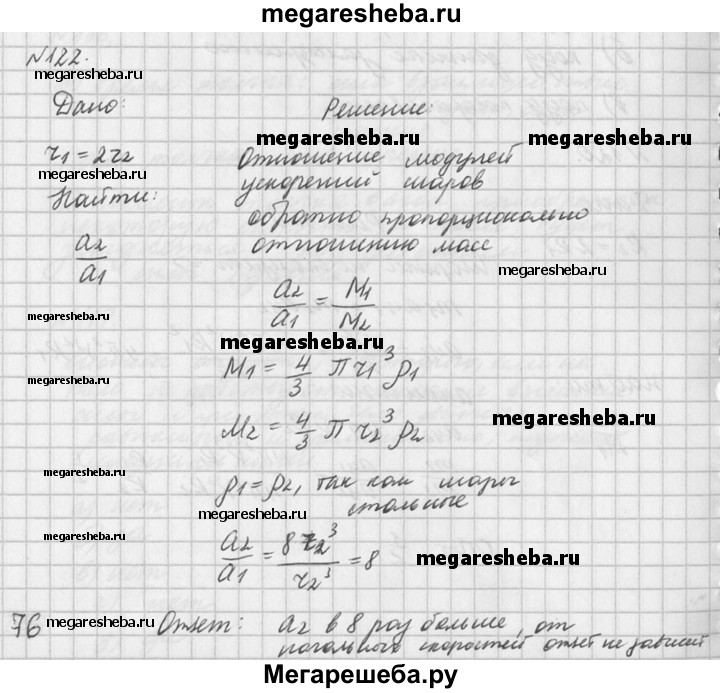 megaresheba.ru
N122.
megaresheba.ru
Дано: Решение:
megaresheba.ru
r1 = 2r2 Отношение модулей
megaresheba.ru
Найти: ускорений шаров
обратно пропорционально
a2/a1 отношению масс
megaresheba.ru
a2/a1 = M1/M2
megaresheba.ru
megaresheba.ru
M1 = 4/3 π r1³ ρ1
megaresheba.ru
M2 = 4/3 π r2³ ρ2
megaresheba.ru
ρ1 = ρ2, так как шары
стальные
megaresheba.ru
megaresheba.ru
a2/a1 = 8 r2³/r2³ = 8
megaresheba.ru
76 megaresheba.ru Ответ: a2 в 8 раз больше, от
начальных скоростей ответ не зависит
Мегарешеба.ру